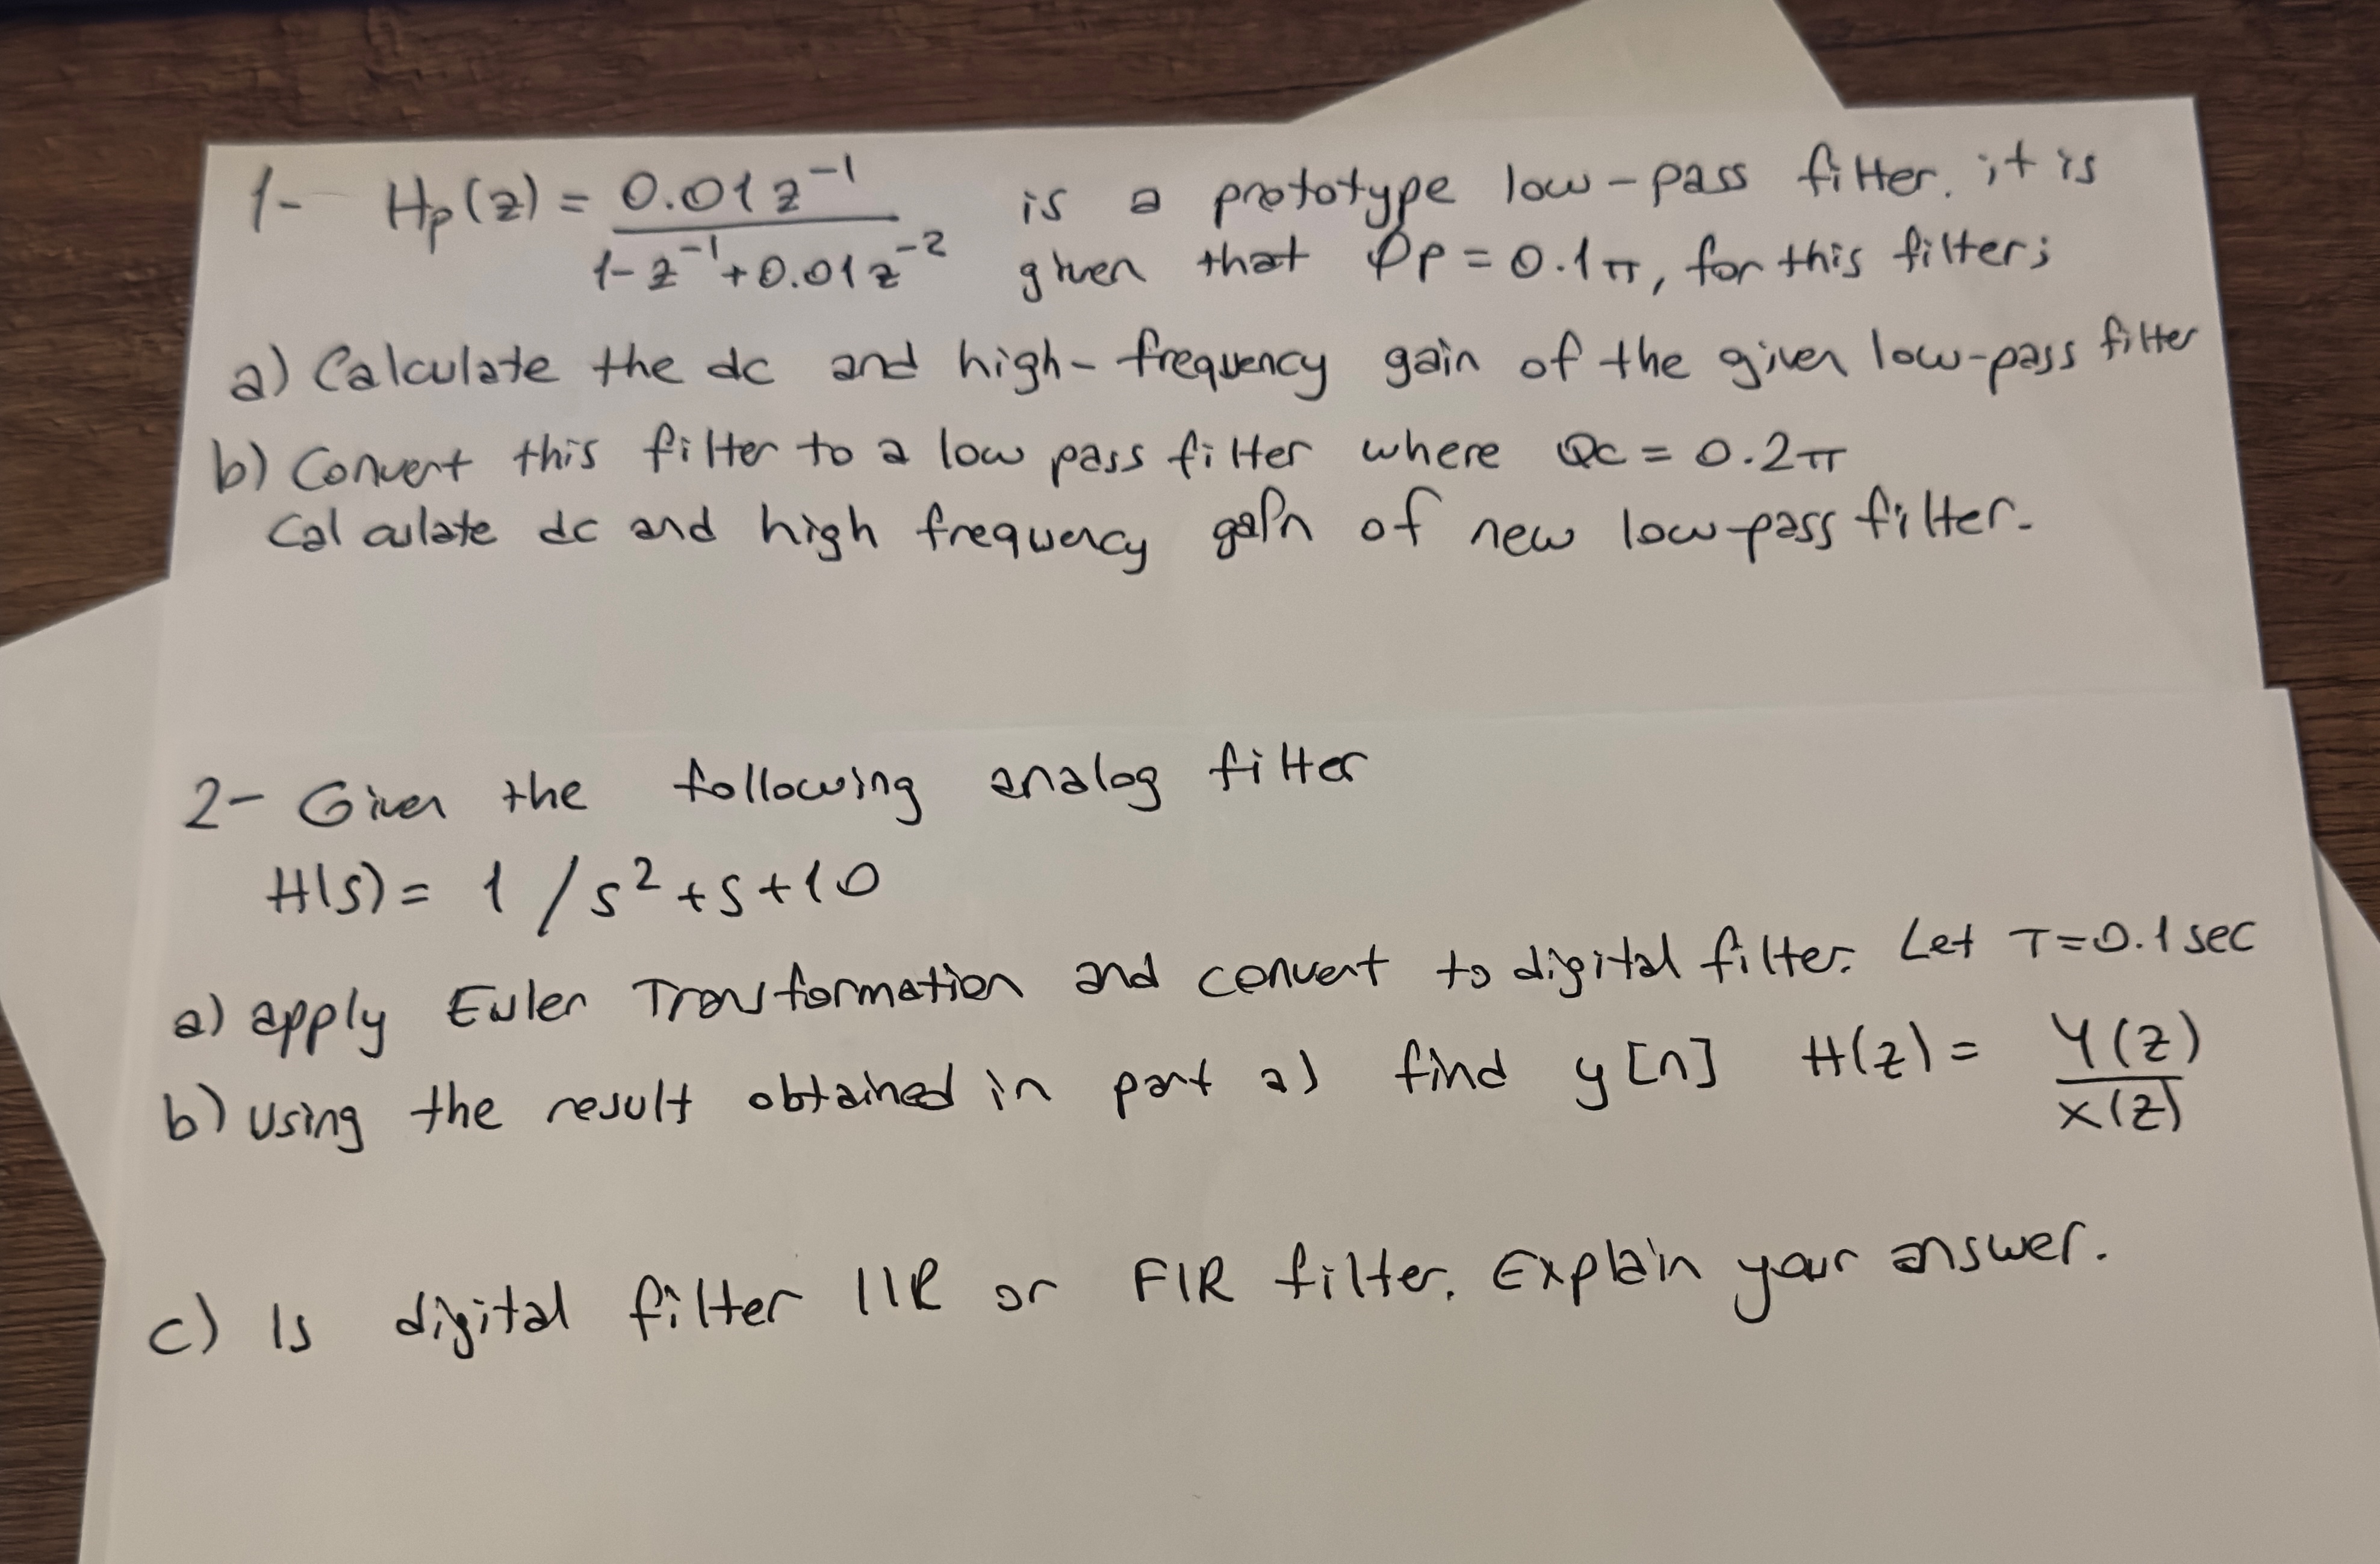 1- Hp(z) = 0.01z⁻¹ / 1-z⁻¹+0.01z⁻² is a prototype low-pass filter. it is
given that Øp = 0.1π, for this filter;
a) Calculate the dc and high-frequency gain of the given low-pass filter
b) Convert this filter to a low pass filter where Øc = 0.2π
Calculate dc and high frequency gain of new low-pass filter.
2- Given the following analog filter
H(s) = 1 / s²+s+10
a) apply Euler Transformation and convert to digital filter. Let T=0.1 sec
b) Using the result obtained in part a) find y[n] H(z) = Y(z) / X(z)
c) Is digital filter IIR or FIR filter. Explain your answer.